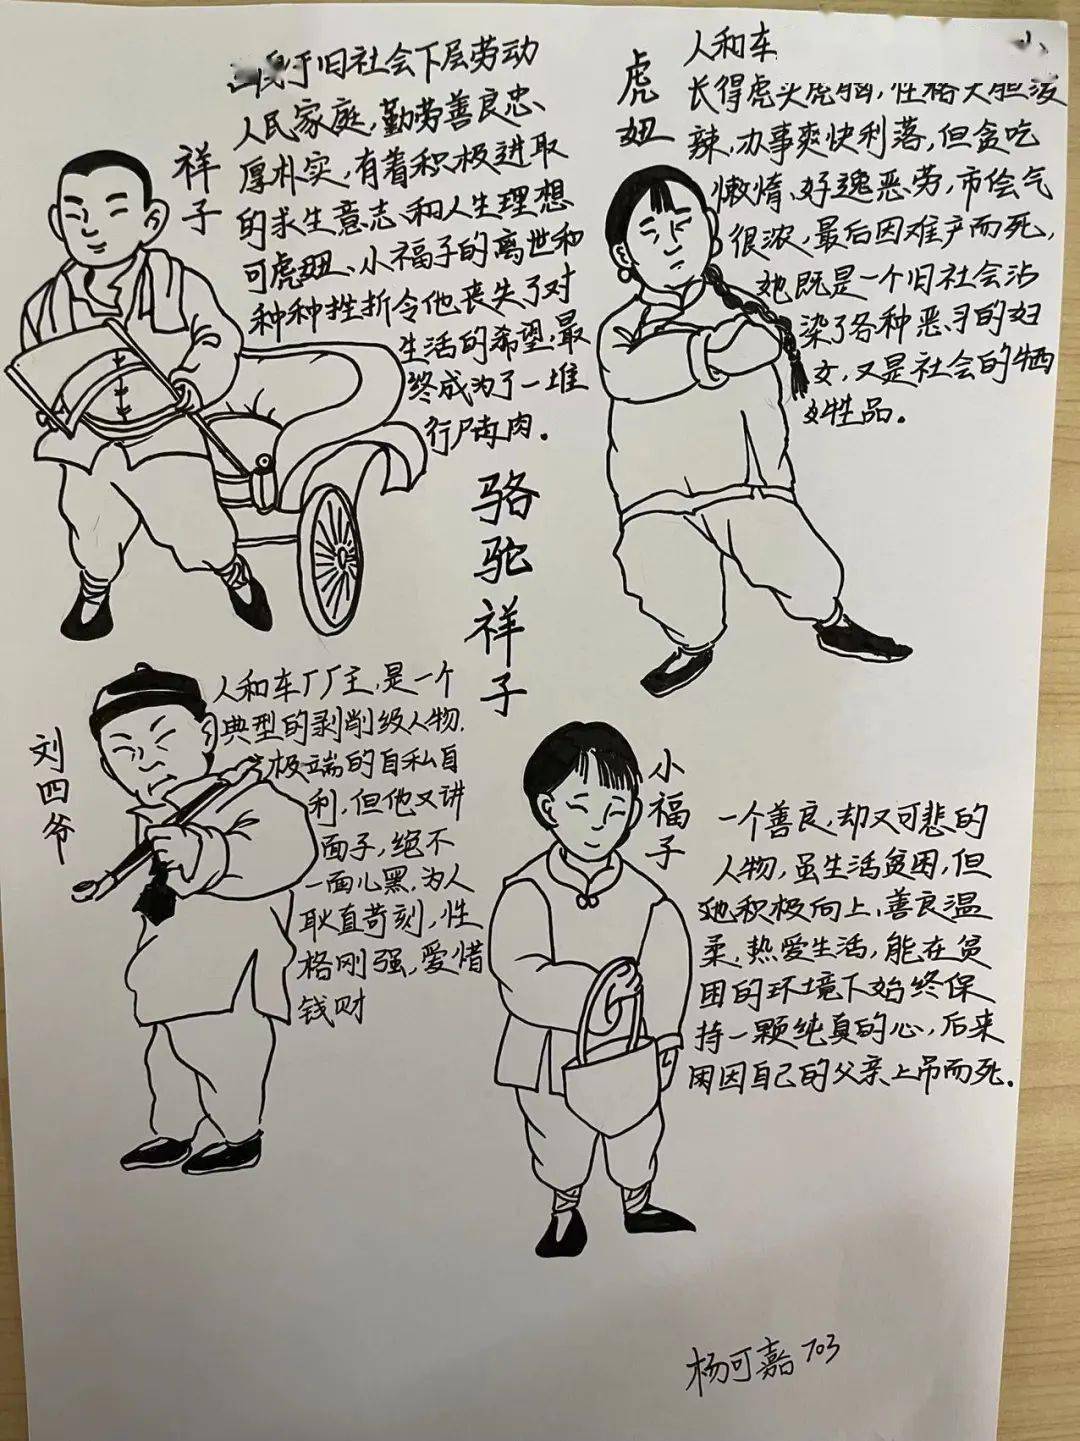 祥子
于旧社会下层劳动
人民家庭,勤劳善良忠、
厚朴实,有着积极进取
的求生意志、和人生理想
可虎妞、小福子的离世和
种种挫折令他丧失了对
生活的希望,最
终成为了一堆
行尸肉.
虎妞
人和车
长得虎头虎脑,性格大胆泼
辣,办事爽快利落,但贪吃
懒惰、好逸恶劳,市侩气
很浓,最后因难产而死,
她既是一个旧社会沾
染了各种恶习的妇
女,又是社会的牺
牲品。
骆驼祥子
刘四爷
人和车厂厂主,是一个
典型的剥削级人物.
极端的自私自
利,但他又讲
面子,绝不
一面儿黑,为人
耿直苛刻,性
格刚强,爱惜
钱财
小福子
一个善良,却又可悲的
人物,虽生活贫困,但
她积极向上,善良温
柔,热爱生活,能在贫
困的环境下始终保
持一颗纯真的心,后来
因自己的父亲上吊而死.
杨可嘉 703